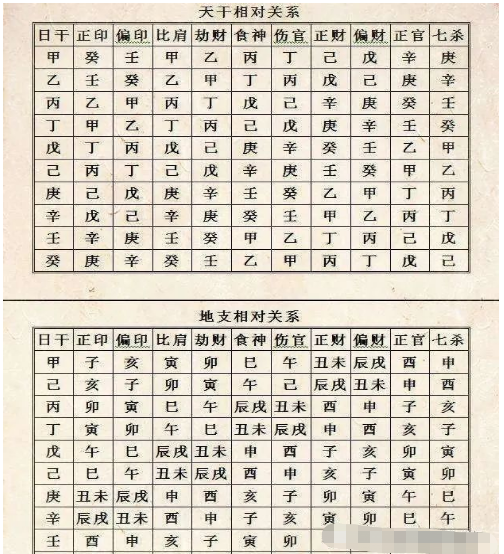 天干相对关系
日干 正印 偏印 比肩 劫财 食神 伤官 正财 偏财 正官 七杀
甲 癸 壬 甲 乙 丙 丁 己 戊 辛 庚
乙 壬 癸 乙 甲 丁 丙 戊 己 庚 辛
丙 乙 甲 丙 丁 戊 己 辛 庚 癸 壬
丁 甲 乙 丁 丙 己 戊 庚 辛 壬 癸
戊 丁 丙 戊 己 庚 辛 癸 壬 乙 甲
己 丙 丁 己 戊 辛 庚 壬 癸 甲 乙
庚 己 戊 庚 辛 壬 癸 乙 甲 丁 丙
辛 戊 己 辛 庚 癸 壬 甲 乙 丙 丁
壬 辛 庚 壬 癸 甲 乙 丁 丙 己 戊
癸 庚 辛 癸 壬 乙 甲 丙 丁 戊 己
地支相对关系
日干 正印 偏印 比肩 劫财 食神 伤官 正财 偏财 正官 七杀
甲 子 亥 寅 卯 巳 午 丑未 辰戌 酉 申
己 亥 子 卯 寅 午 己 辰戌 丑未 申 酉
丙 卯 寅 巳 午 辰戌 丑未 酉 申 子 亥
丁 寅 卯 午 巳 丑未 辰戌 申 酉 亥 子
戊 午 巳 辰戌 丑未 申 酉 子 亥 卯 寅
己 巳 午 丑未 辰戌 酉 申 亥 子 寅 卯
庚 丑未 辰戌 申 酉 亥 子 卯 寅 午 巳
辛 辰戌 丑未 酉 申 子 亥 寅 卯 巳 午
壬 酉 申 亥 子 寅 卯